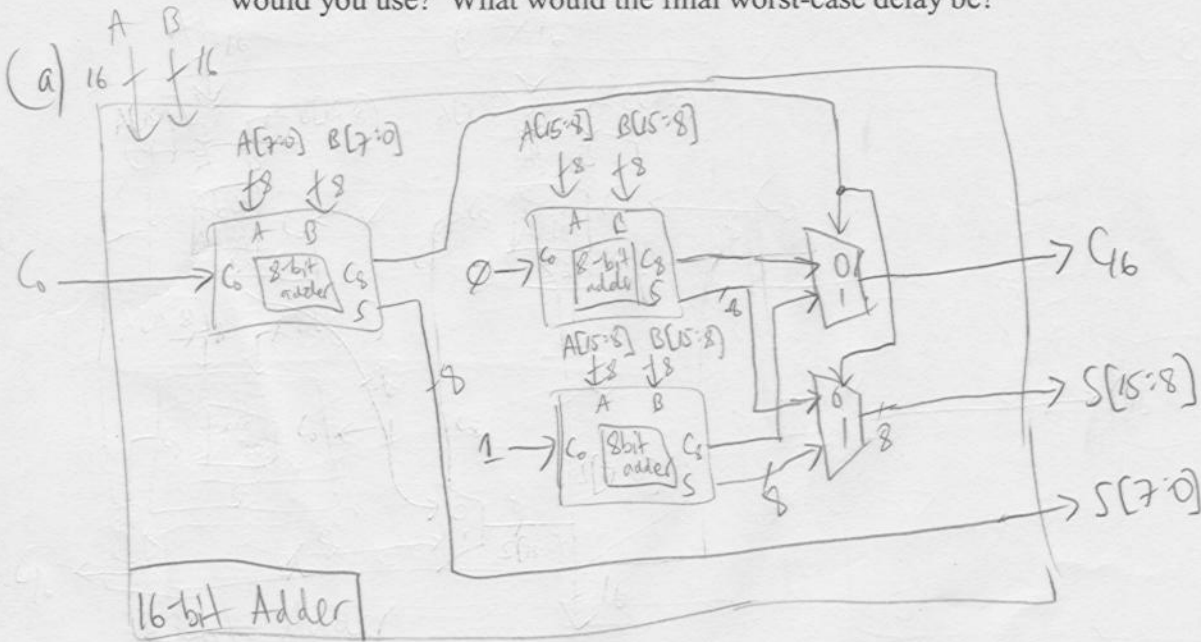 would you use? What would the final worst-case delay be?
(a)
A B
16 16
A[7:0] B[7:0]
8 8
A B
C₀ C₀ 8-bit adder C8
S
8
A[15:8] B[15:8]
8 8
A B
0 C₀ 8-bit adder C8
S
8
A[15:8] B[15:8]
8 8
A B
1 C₀ 8bit adder C8
S
8
0
1
C16
0
1
8
S[15:8]
S[7:0]
16-bit Adder